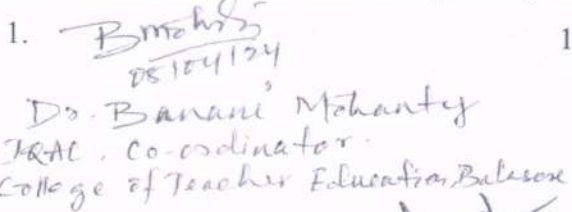 1. 1
05/04/24
Dr. Banani Mohanty
IQAC. Co-ordinator.
College of Teacher Education, Balasore